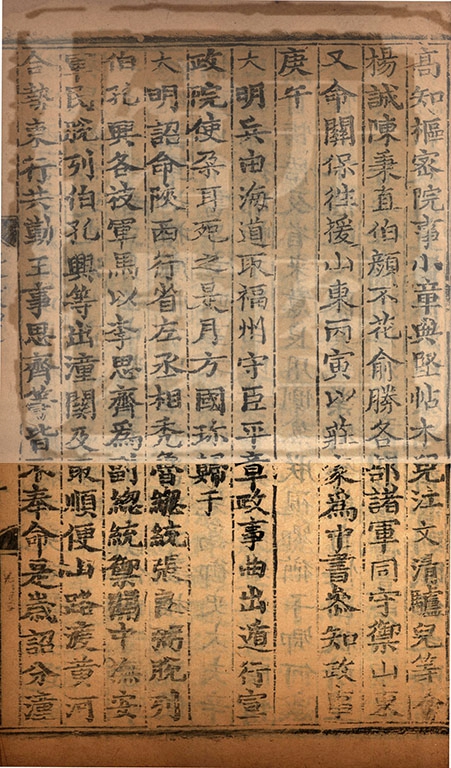 高知樞密院事小章與堅帖木兒江文清驢兒等會
楊誠陳秉直伯顏不花俞勝各部諸軍同守禦山東
又命關保往援山東丙寅以莊家爲中書參知政事
庚午
大明兵由海道取福州守臣平章政事曲出遁行宣
政院使朶耳死之是月方國珎歸于
大明詔命陜西行省左丞相禿魯總統張良弼脫列
伯孔興各枝軍馬以李思齊爲副總統禦關中撫安
軍民脫列伯孔興等出潼關及取順便山路渡黄河
合勢東行共勤王事思齊等皆不奉命是歲詔分潼